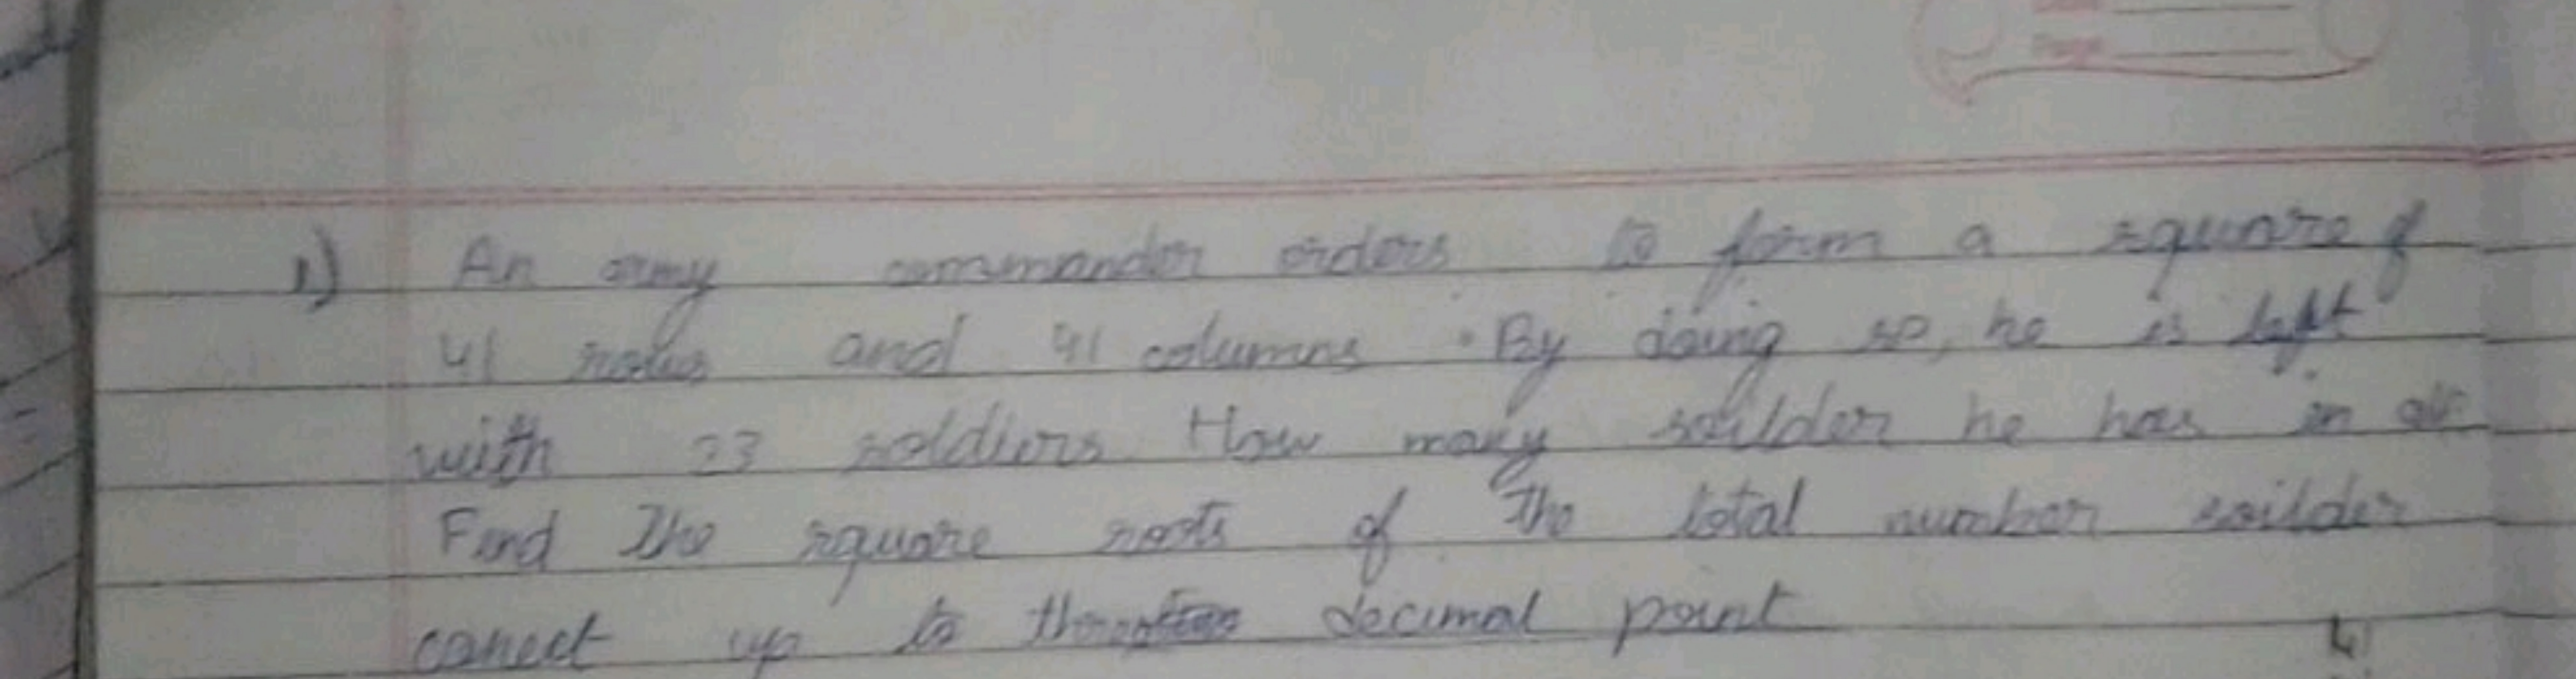 Page
1.) An army commander orders to form a square of
41 rows and 41 columns . By doing so, he is left
with 23 soldiers. How many soilder he has in all
Find The square roots of The total number soilder
correct up to decimal point